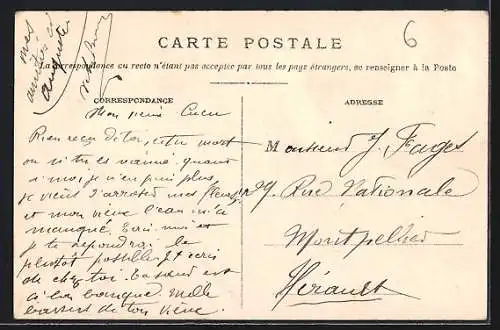 mes
amitiés à
auguste
CARTE POSTALE
6
La correspondance au recto n'étant pas acceptée par tous les pays étrangers, se renseigner à la Poste
CORRESPONDANCE
ADRESSE
Mon vieux
Rien reçu de toi, es tu mort
ou si tu es vanné, quant
à moi je n'en puis plus,
je viens d'arroser mes fleurs
et mon vieux l'eau m'a
manqué. Ecris moi et
je te repondrai le
plutôt possible. J't ecris
de chez toi. est
à la banque. Mille
baisers de ton vieux.
Monsieur J. Fages
29 Rue Nationale
Montpellier
Hérault